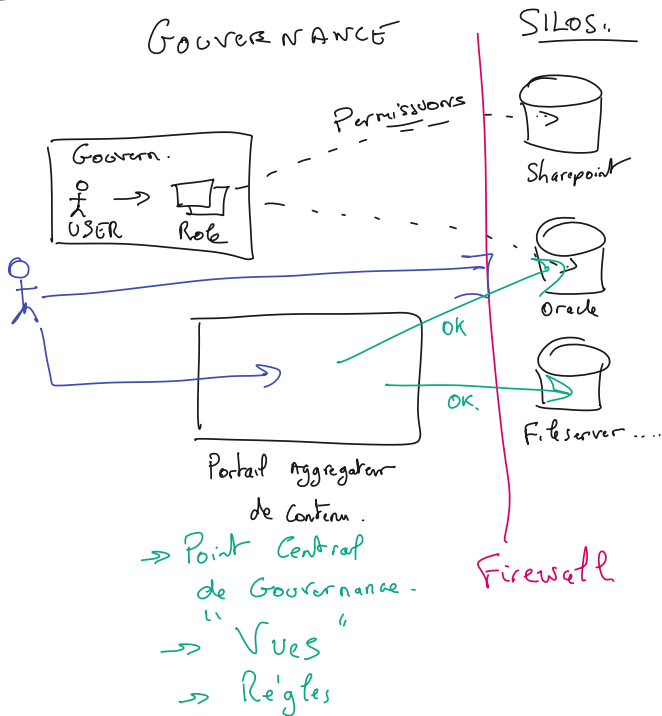 GOUVERNANCE
SILOS..
Permissions
Sharepoint
Gouvern.
USER
Role
Oracle
OK
OK.
Fileserver....
Portail Aggregateur
de Contenu.
Point Central
de Gouvernance.
"Vues"
Règles
Firewall